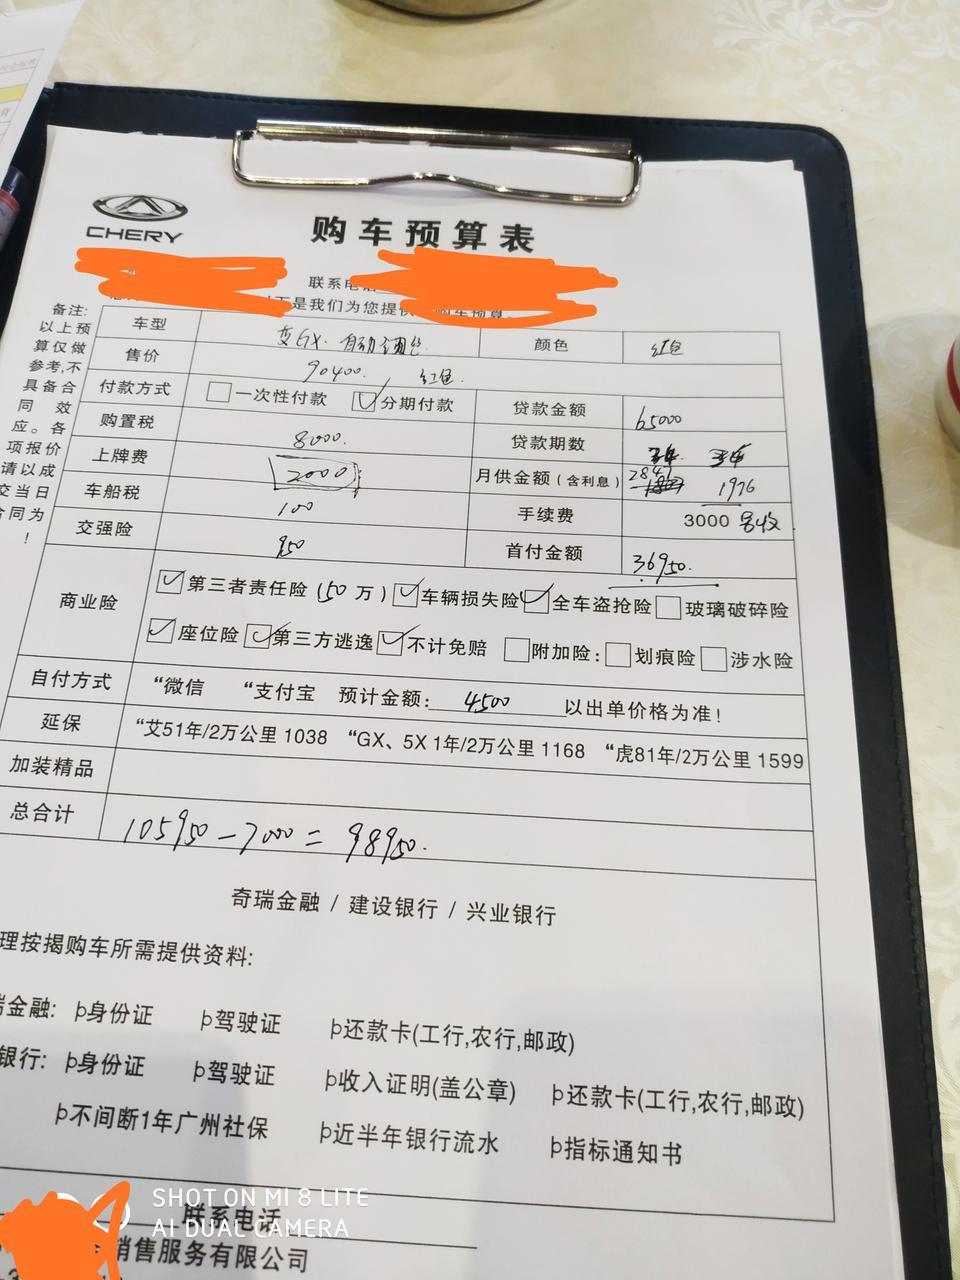 CHERY
购车预算表
联系电话
以下是我们为您提供 购车预算
备注:以上预算仅做参考,不具备合同效应。各项报价请以成交当日合同为 !
车型 GX 自动 颜色 红色
售价 90400 红色
付款方式 一次性付款 分期付款 贷款金额 65000
购置税 8000. 贷款期数
上牌费 2000 月供金额(含利息) 2841 1976
车船税 100 手续费 3000
交强险 950 首付金额 36950.
商业险 第三者责任险(50万) 车辆损失险 全车盗抢险 玻璃破碎险
座位险 第三方逃逸 不计免赔 附加险: 划痕险 涉水险
自付方式 “微信 “支付宝 预计金额: 4500 以出单价格为准!
延保 “艾51年/2万公里 1038 “GX、5X 1年/2万公里 1168 “虎81年/2万公里 1599
加装精品
总合计 105950-7000=98950.
奇瑞金融 / 建设银行 / 兴业银行
理按揭购车所需提供资料:
瑞金融: þ身份证 þ驾驶证 þ还款卡(工行,农行,邮政)
银行: þ身份证 þ驾驶证 þ收入证明(盖公章) þ还款卡(工行,农行,邮政)
þ不间断1年广州社保 þ近半年银行流水 þ指标通知书
SHOT ON MI 8 LITE
AI DUAL CAMERA
联系电话
销售服务有限公司